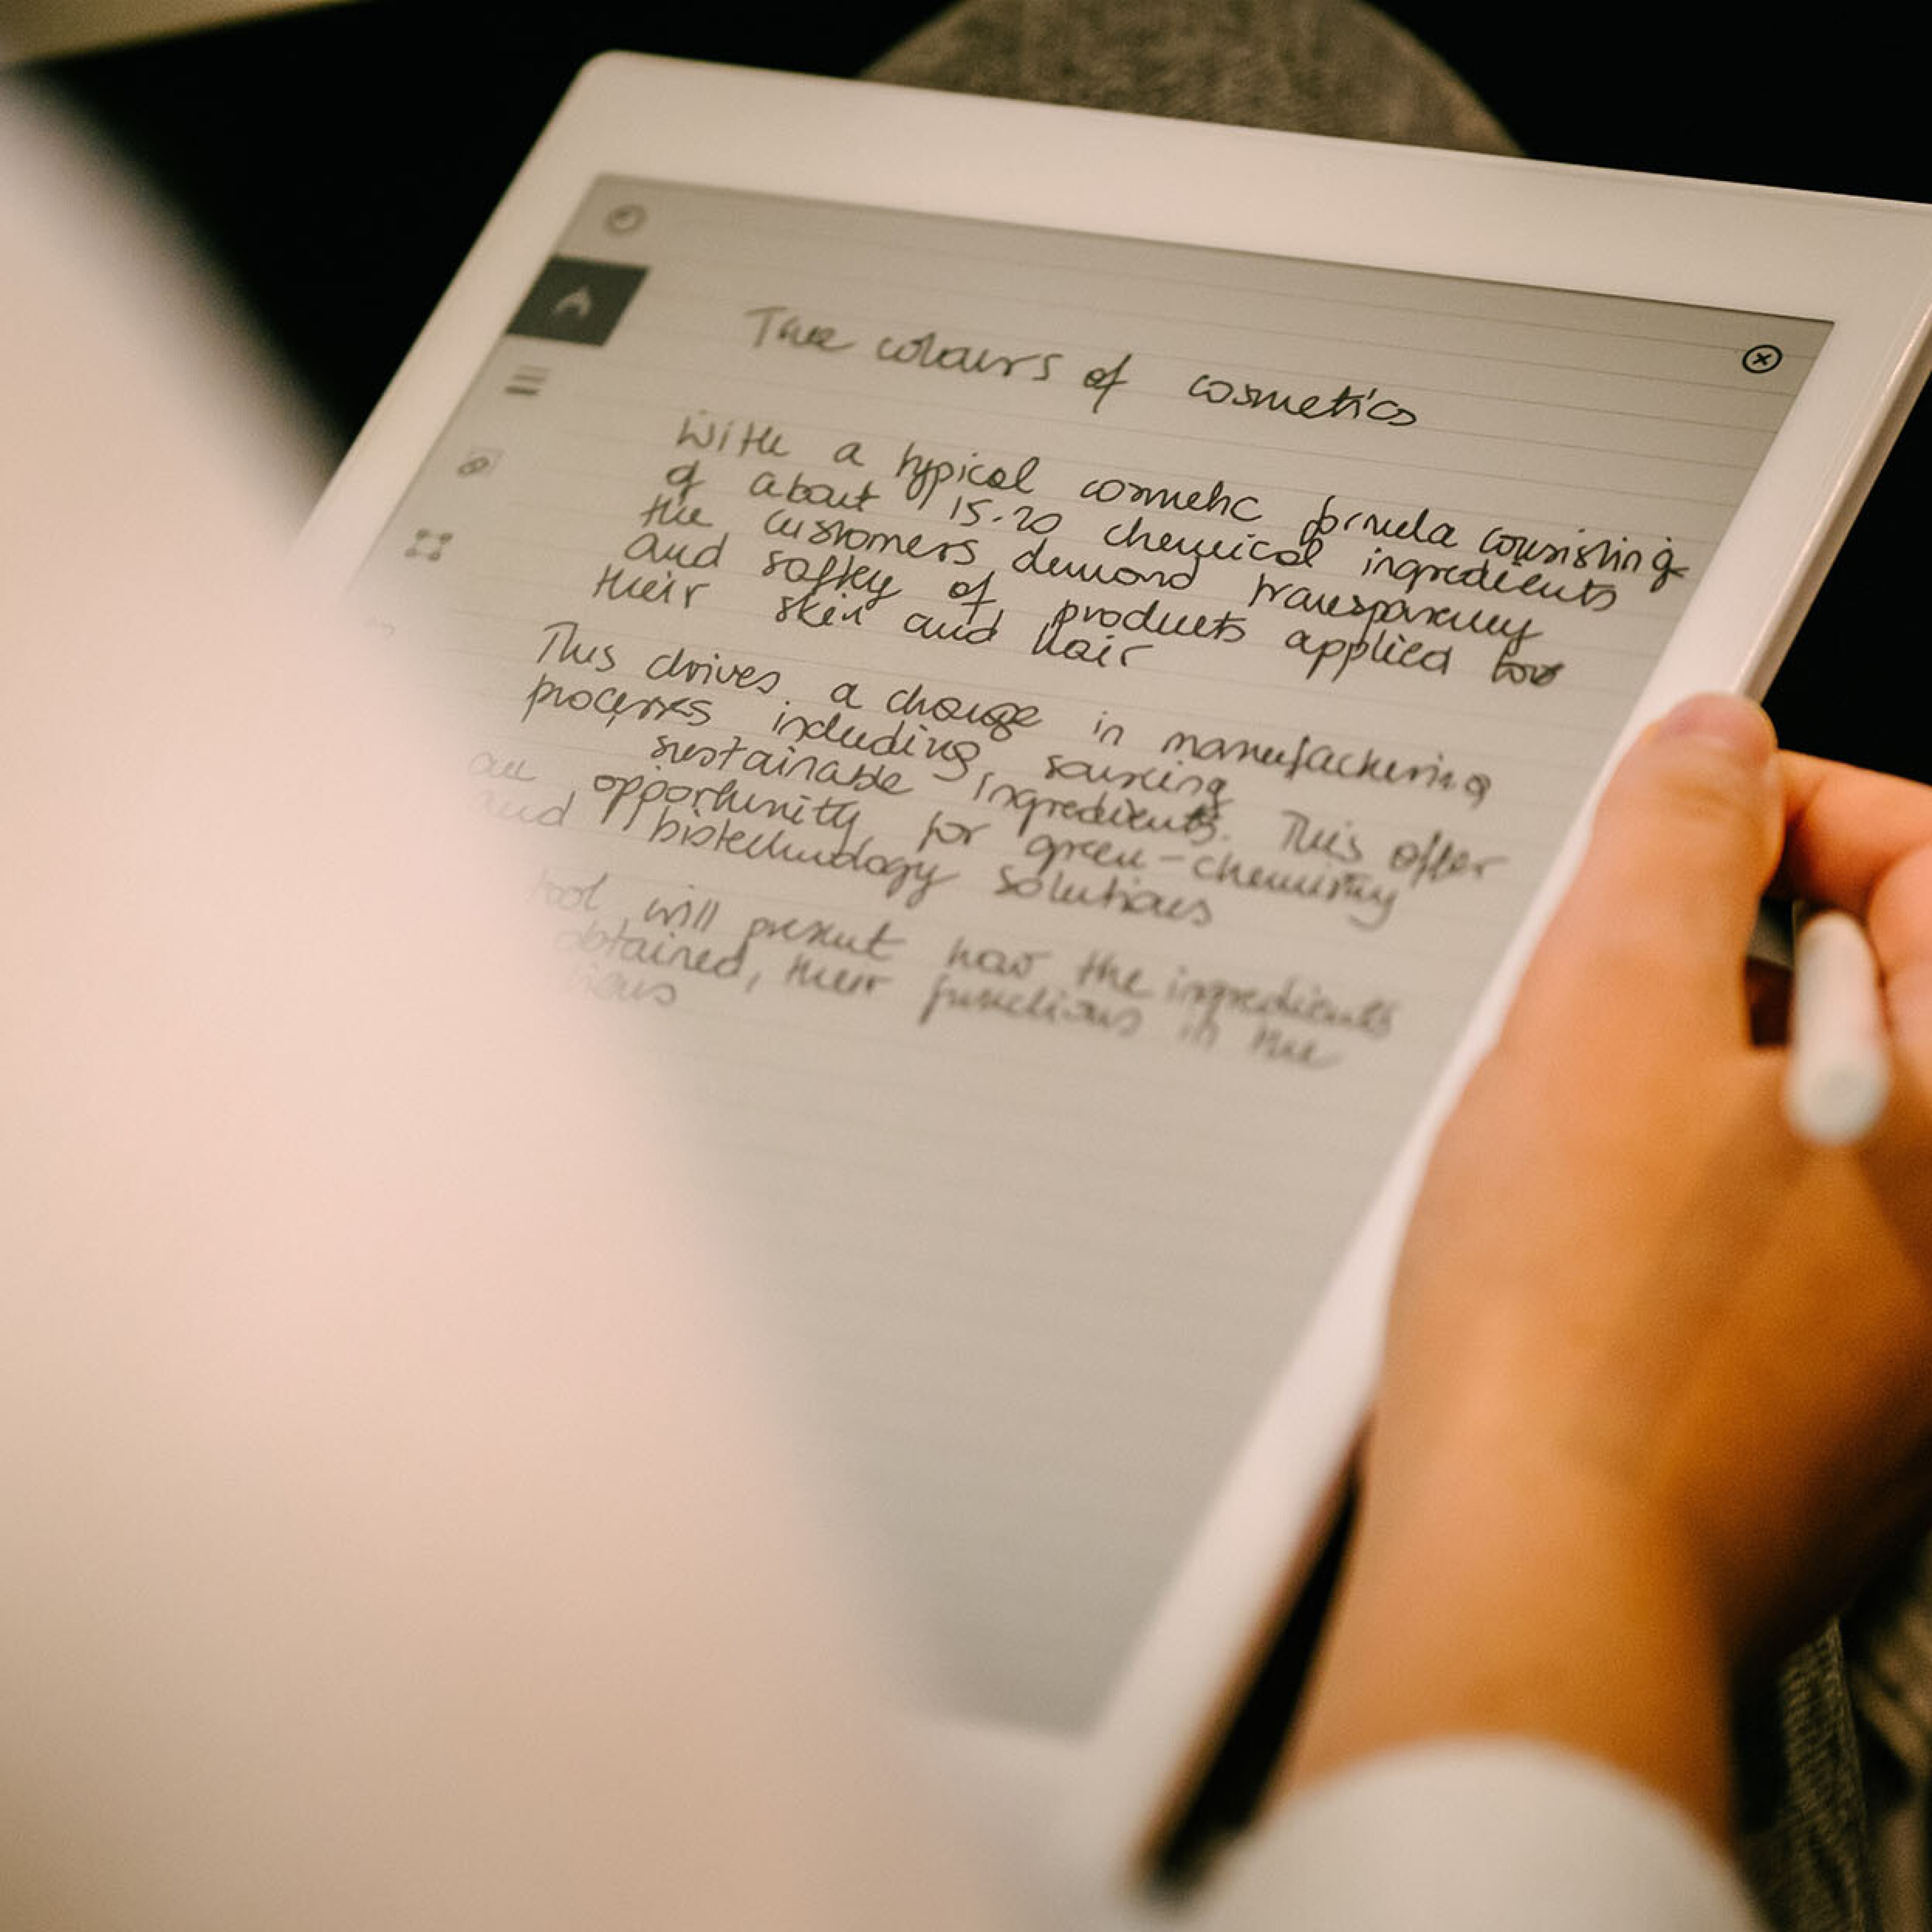 True colours of cosmetics
With a typical cosmetic formula consisting
of about 15-20 chemical ingredients
the customers demand transparency
and safety of products applied to
their skin and hair
This drives a change in manufacturing
processes including sourcing
sustainable ingredients. This offer
an opportunity for green-chemistry
and biotechnology solutions
tool will present how the ingredients
obtained, their functions in the